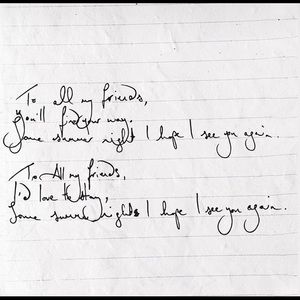 To all my friends,
you'll find your way.
Some summer night I hope I see you again.
To All my friends,
I'd love to stay,
Some summer nights I hope I see you again.